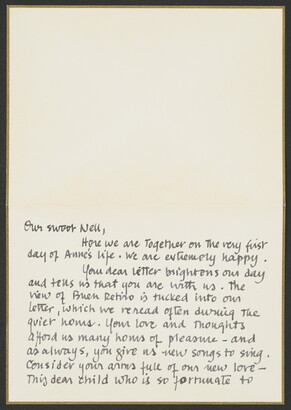 Our sweet Nell,
Here we are Together on The very first
day of Anne's life. We are extremely happy.
Your dear letter brightens our day
and tells us that you are with us. The
view of Buen Retiro is tucked into our
letter, which we reread often during the
quiet hours. Your love and thoughts
afford us many hours of pleasure - and
as always, you give us new songs to sing.
Consider your arms full of our new love -
This dear child who is so fortunate to